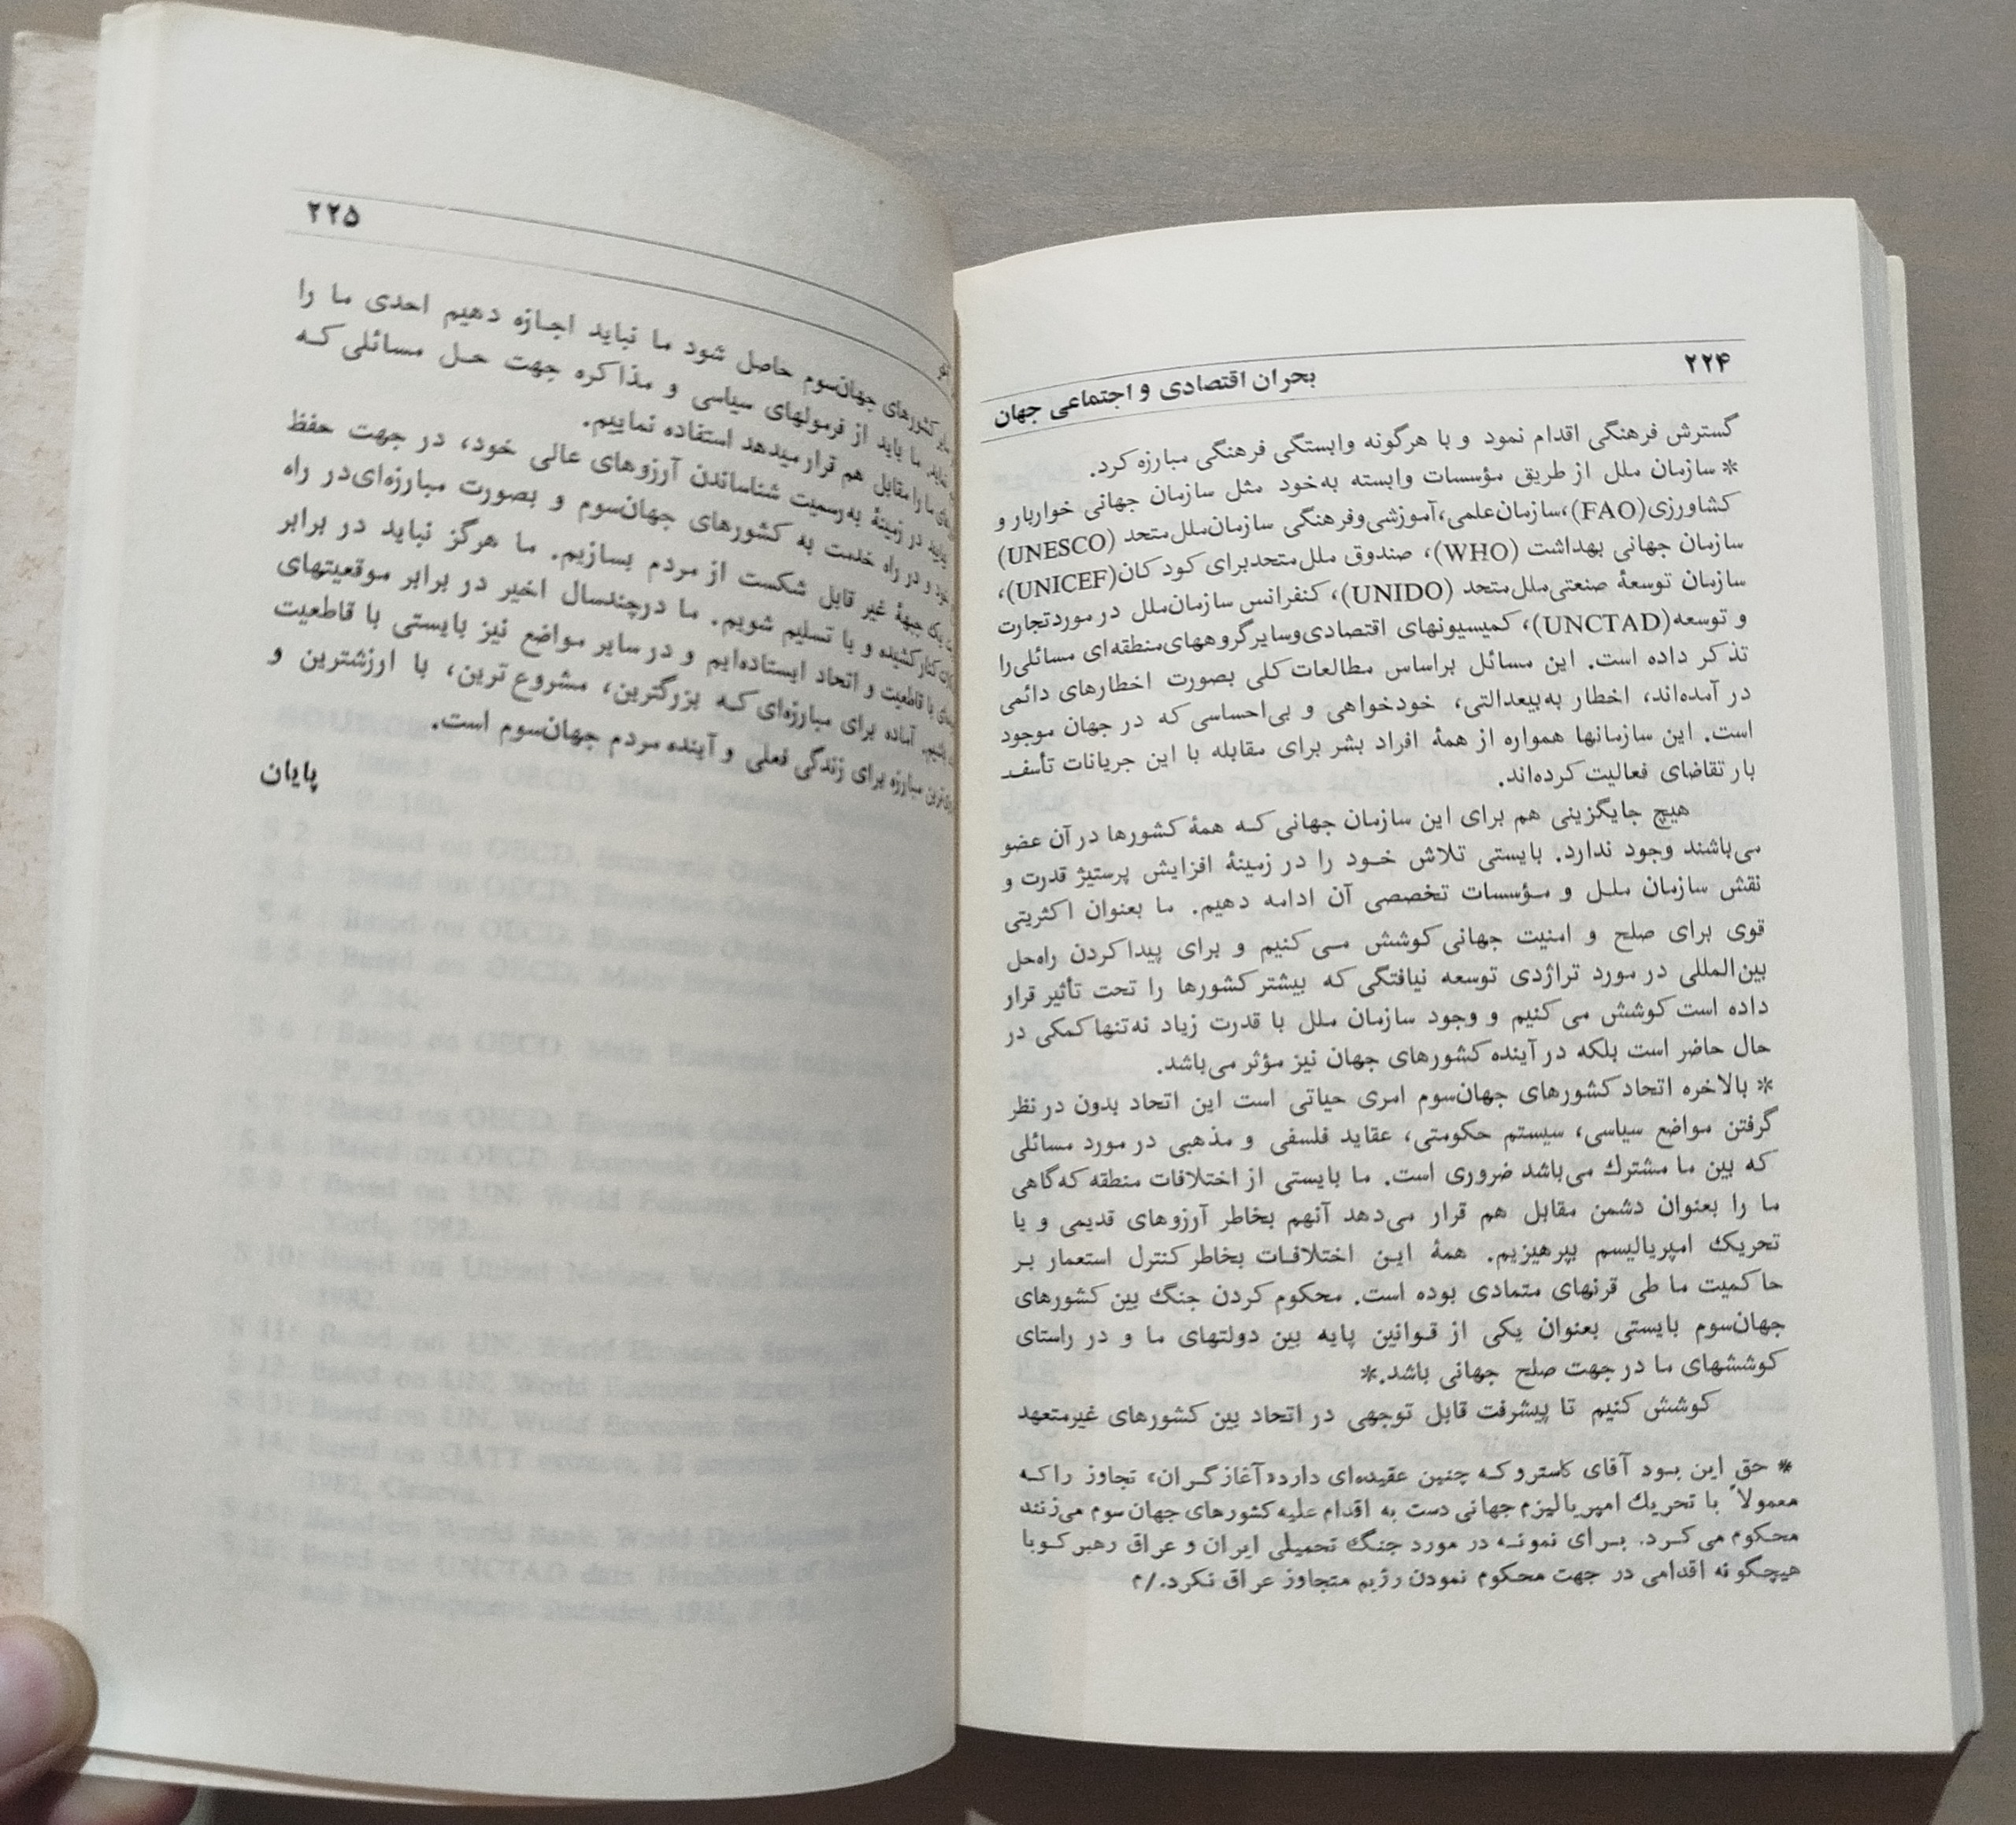 ۲۲۴
بحران اقتصادی و اجتماعی جهان
گسترش فرهنگی اقدام نمود و با هرگونه وابستگی فرهنگی مبارزه کرد.
* سازمان ملل از طریق مؤسسات وابسته به‌خود مثل سازمان جهانی خواربار و
کشاورزی (FAO)، سازمان‌علمی، آموزشی‌وفرهنگی سازمان‌ملل‌متحد (UNESCO)
سازمان جهانی بهداشت (WHO)، صندوق ملل‌متحدبرای کودکان (UNICEF)،
سازمان توسعهٔ صنعتی‌ملل‌متحد (UNIDO)، کنفرانس سازمان‌ملل در موردتجارت
و توسعه (UNCTAD)، کمیسیونهای اقتصادی‌وسایرگروههای‌منطقه‌ای مسائلی‌را
تذکر داده است. این مسائل براساس مطالعات کلی بصورت اخطارهای دائمی
در آمده‌اند، اخطار به‌بیعدالتی، خودخواهی و بی‌احساسی که در جهان موجود
است. این سازمانها همواره از همهٔ افراد بشر برای مقابله با این جریانات تأسف
بار تقاضای فعالیت کرده‌اند.
هیچ جایگزینی هم برای این سازمان جهانی که همهٔ کشورها در آن عضو
می‌باشند وجود ندارد. بایستی تلاش خود را در زمینهٔ افزایش پرستیژ قدرت و
نقش سازمان ملل و مؤسسات تخصصی آن ادامه دهیم. ما بعنوان اکثریتی
قوی برای صلح و امنیت جهانی کوشش می‌کنیم و برای پیدا کردن راه‌حل
بین‌المللی در مورد تراژدی توسعه نیافتگی که بیشتر کشورها را تحت تأثیر قرار
داده است کوشش می‌کنیم و وجود سازمان ملل با قدرت زیاد نه‌تنها کمکی در
حال حاضر است بلکه در آینده کشورهای جهان نیز مؤثر می‌باشد.
* بالاخره اتحاد کشورهای جهان‌سوم امری حیاتی است این اتحاد بدون در نظر
گرفتن مواضع سیاسی، سیستم حکومتی، عقاید فلسفی و مذهبی در مورد مسائلی
که بین ما مشترك می‌باشد ضروری است. ما بایستی از اختلافات منطقه که گاهی
ما را بعنوان دشمن مقابل هم قرار می‌دهد آنهم بخاطر آرزوهای قدیمی و یا
تحریك امپریالیسم بپرهیزیم. همهٔ این اختلافات بخاطر کنترل استعمار بر
حاکمیت ما طی قرنهای متمادی بوده است. محکوم کردن جنگ بین کشورهای
جهان‌سوم بایستی بعنوان یکی از قوانین پایه بین دولتهای ما و در راستای
کوششهای ما در جهت صلح جهانی باشد.*
کوشش کنیم تا پیشرفت قابل توجهی در اتحاد بین کشورهای غیرمتعهد
* حق این بود آقای کاسترو که چنین عقیده‌ای دارد «آغاز گران» تجاوز را که
معمولاً با تحریك امپریالیزم جهانی دست به اقدام علیه کشورهای جهان سوم می‌زنند
محکوم می‌کرد. برای نمونه در مورد جنگ تحمیلی ایران و عراق رهبر کوبا
هیچگونه اقدامی در جهت محکوم نمودن رژیم متجاوز عراق نکرد./م
۲۲۵
کشورهای جهان‌سوم حاصل شود ما نباید اجازه دهیم احدی ما را
ما باید از فرمولهای سیاسی و مذاکره جهت حل مسائلی که
ما را مقابل هم قرار میدهد استفاده نماییم.
باید در زمینهٔ به‌رسمیت شناساندن آرزوهای عالی خود، در جهت حفظ
خود و در راه خدمت به کشورهای جهان‌سوم و بصورت مبارزه‌ای‌در راه
یک جبههٔ غیر قابل شکست از مردم بسازیم. ما هرگز نباید در برابر
کنار کشیده و یا تسلیم شویم. ما درچندسال اخیر در برابر موقعیتهای
با قاطعیت و اتحاد ایستاده‌ایم و در سایر مواضع نیز بایستی با قاطعیت
باشیم. آماده برای مبارزه‌ای که بزرگترین، مشروع ترین، با ارزشترین و
مبارزه برای زندگی فعلی و آینده مردم جهان‌سوم است.
پایان